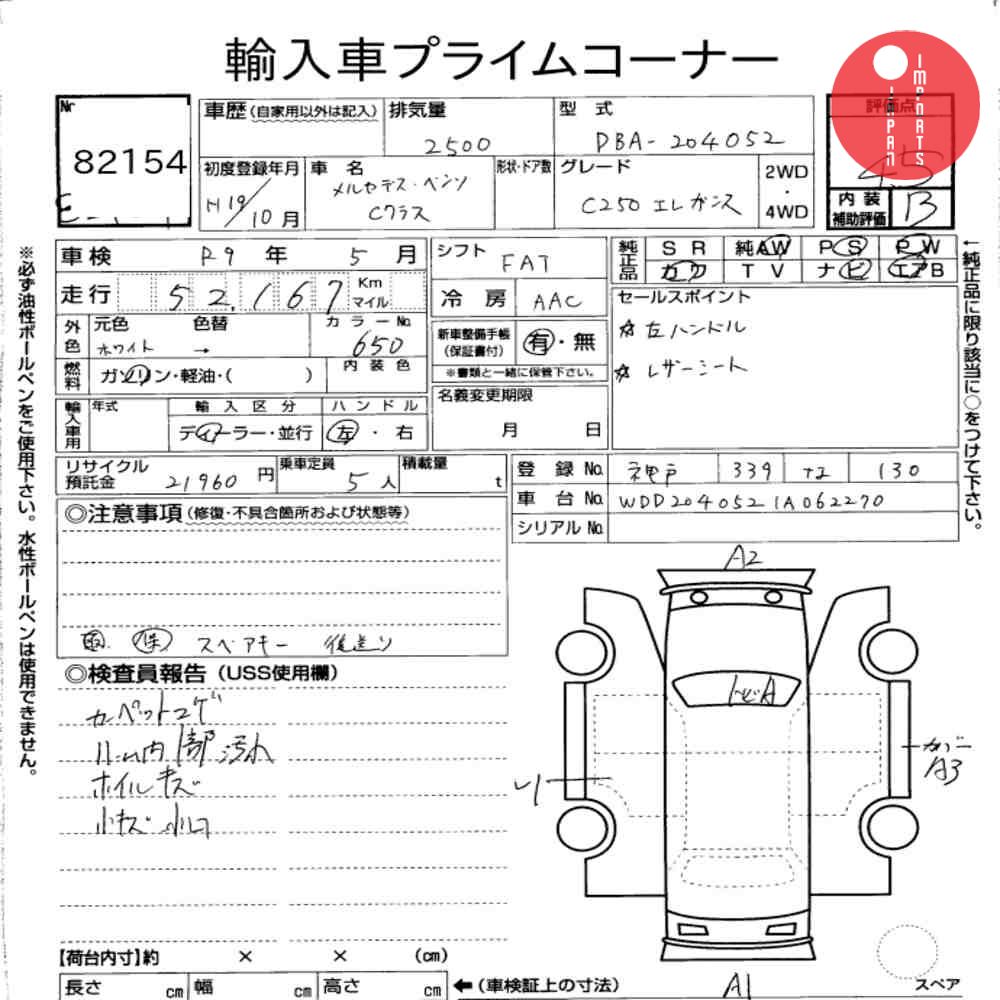 輸入車プライムコーナー
JAPAN IMPORTS
Nr 82154
車歴 (自家用以外は記入)
排気量 2500
型式 DBA-204052
評価点 4.5
初度登録年月 H19/10月
車名 メルセデス・ベンツ Cクラス
形状・ドア数
グレード C250 エレガンス
2WD・4WD
内装補助評価 B
車検 R9年 5月
シフト FAT
純正品 SR 純AW PS PW
カワ TV ナビ エアB
走行 52,167 Km マイル
冷房 AAC
セールスポイント
☆左ハンドル
☆レザーシート
外色 元色 ホワイト 色替 → カラーNo. 650
新車整備手帳(保証書付) 有・無
※書類と一緒に保管下さい。
燃料 ガソリン・軽油・( )
内装色
名義変更期限 月 日
輸入車用 年式 輸入区分 ディーラー・並行 ハンドル 左・右
リサイクル預託金 21960円
乗車定員 5人
積載量 t
登録No. 神戸 339 130
車台No. WDD2040521A062270
シリアルNo.
◎注意事項(修復・不具合箇所および状態等)
保 スペアキー 後送り
◎検査員報告(USS使用欄)
カーペットコゲ
ルーム内 部汚れ
ホイルキズ
小キズ 小凹
A2
トビA
カバー A3
A1
【荷台内寸】約 × × (cm)
長さ cm 幅 cm 高さ cm
←(車検証上の寸法)
スペア
※必ず油性ボールペンをご使用下さい。水性ボールペンは使用できません。
←純正品に限り該当に○をつけて下さい。